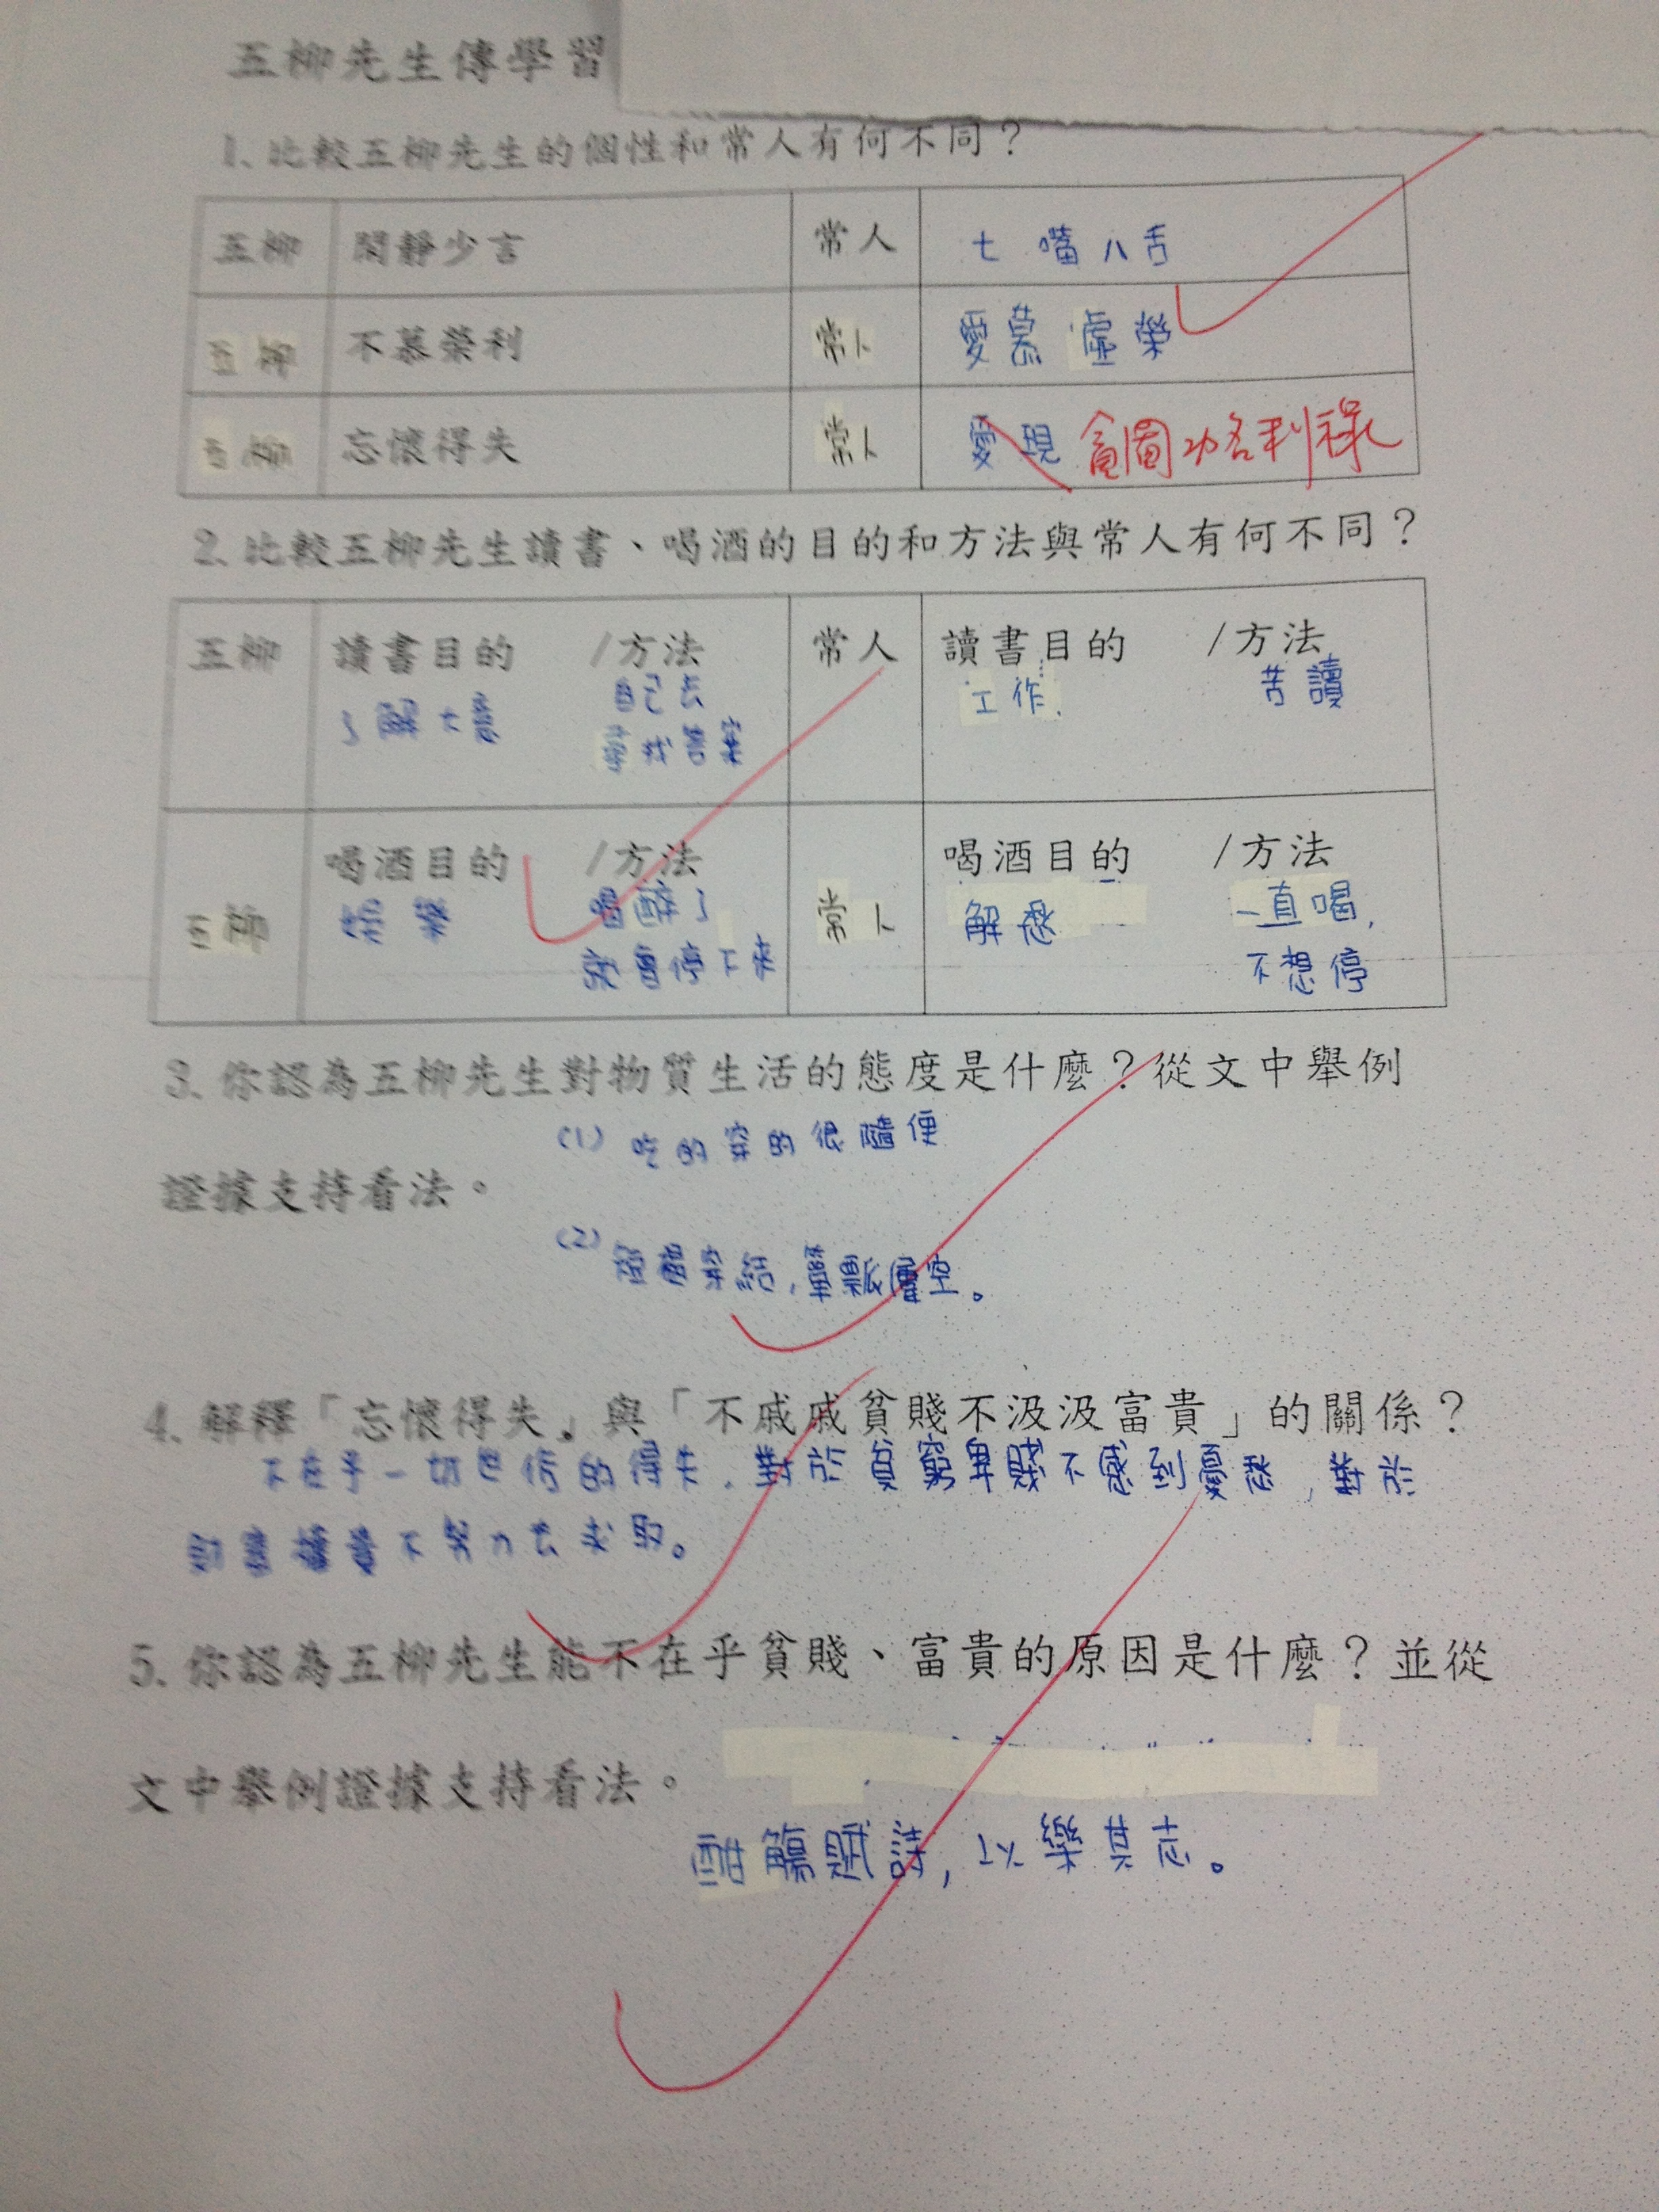 五柳先生傳學習
1. 比較五柳先生的個性和常人有何不同？
五柳 閑靜少言 常人 七嘴八舌
五柳 不慕榮利 常人 愛慕虛榮
五柳 忘懷得失 常人 愛現 貪圖功名利祿
2. 比較五柳先生讀書、喝酒的目的和方法與常人有何不同？
五柳 讀書目的 /方法 常人 讀書目的 /方法
了解大意 自己去 工作. 苦讀
尋找答案
喝酒目的 /方法 喝酒目的 /方法
五柳 娛樂 喝醉了 常人 解愁 一直喝,
就會停下來 不想停
3. 你認為五柳先生對物質生活的態度是什麼？從文中舉例
(1) 吃的穿的很隨便
證據支持看法。
(2) 短褐穿結,簞瓢屢空。
4. 解釋「忘懷得失」與「不戚戚貧賤不汲汲富貴」的關係？
不在乎一切世俗的得失,對於貧窮卑賤不感到憂愁,對於
不努力去求取。
5. 你認為五柳先生能不在乎貧賤、富貴的原因是什麼？並從
文中舉例證據支持看法。
酣觴賦詩,以樂其志。